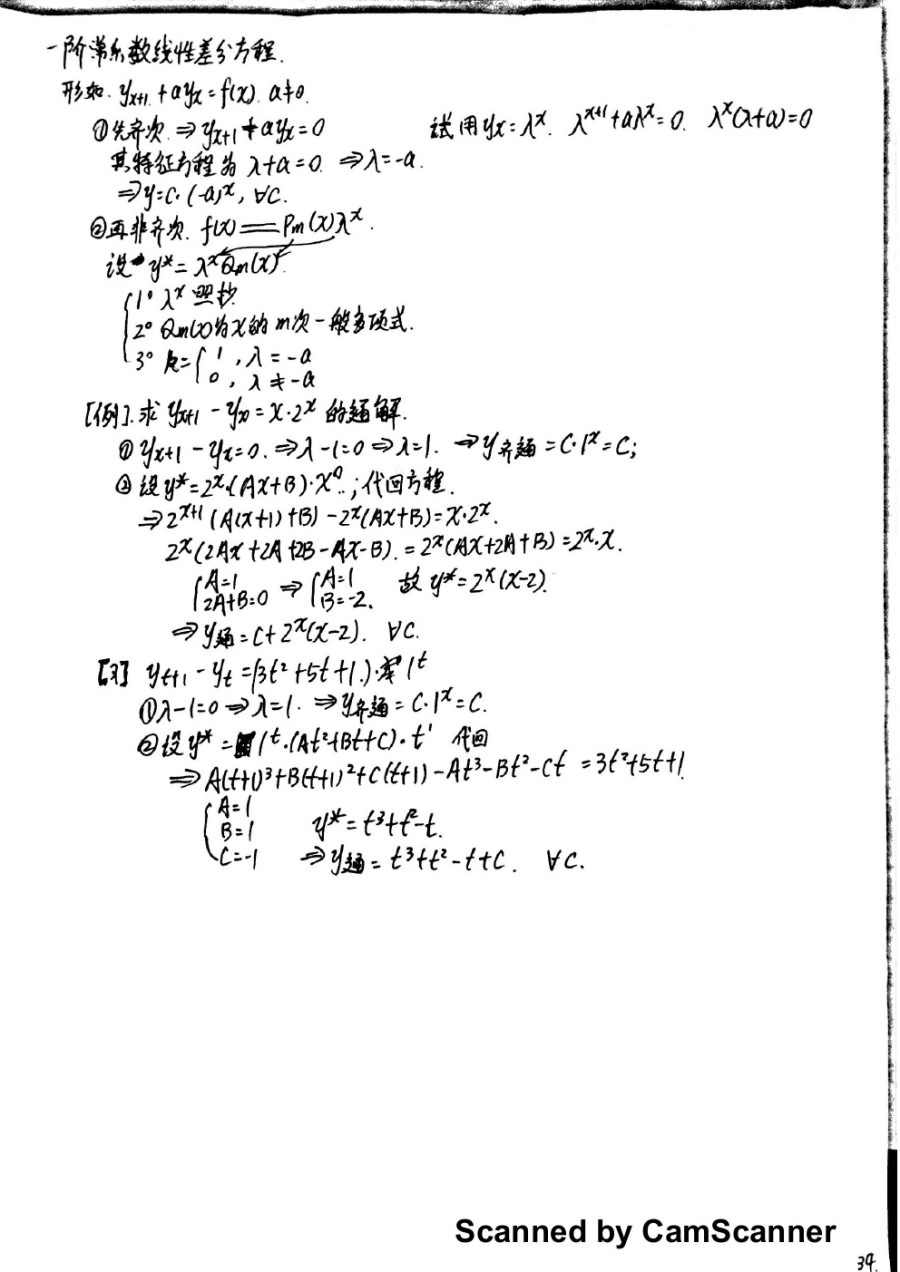 一阶常系数线性差分方程.
形如. yₓ₊₁ + ayₓ = f(x). a≠0.
①先齐次. ⇒ yₓ₊₁ + ayₓ = 0 试用 yx = λˣ. λˣ⁺¹ + aλˣ = 0. λˣ(λ+a) = 0
其特征方程为 λ+a=0. ⇒ λ=-a.
⇒ y = C·(-a)ˣ, ∀C.
②再非齐次. f(x) == Pm(x)λˣ.
设 y* = λˣ Qm(x)
1° λˣ 照抄
2° Qm(x)为x的 m次一般多项式.
3° k = { 1, λ = -a
0, λ ≠ -a
[例].求 yₓ₊₁ - yₓ = x·2ˣ 的通解.
① yₓ₊₁ - yₓ = 0. ⇒ λ-1=0 ⇒ λ=1. ⇒ y齐通 = C·1ˣ = C;
② 设 y* = 2ˣ·(Ax+B)·x⁰ ; 代回方程.
⇒ 2ˣ⁺¹ (A(x+1)+B) - 2ˣ(Ax+B) = x·2ˣ.
2ˣ(2Ax+2A+2B-Ax-B). = 2ˣ(Ax+2A+B) = 2ˣ·x.
{ A=1 ⇒ { A=1 故 y* = 2ˣ(x-2).
2A+B=0 B=-2.
⇒ y通 = C+2ˣ(x-2). ∀C.
[3] yₜ₊₁ - yₜ = (3t²+5t+1.)·1ᵗ
①λ-1=0 ⇒ λ=1. ⇒ y齐通 = C·1ˣ = C.
②设 y* = 1ᵗ·(At²+Bt+C)·t¹ 代回
⇒ A(t+1)³+B(t+1)²+C(t+1)-At³-Bt²-Ct = 3t²+5t+1
A=1
B=1 y* = t³+t²-t.
C=-1 ⇒ y通 = t³+t²-t+C. ∀C.
Scanned by CamScanner